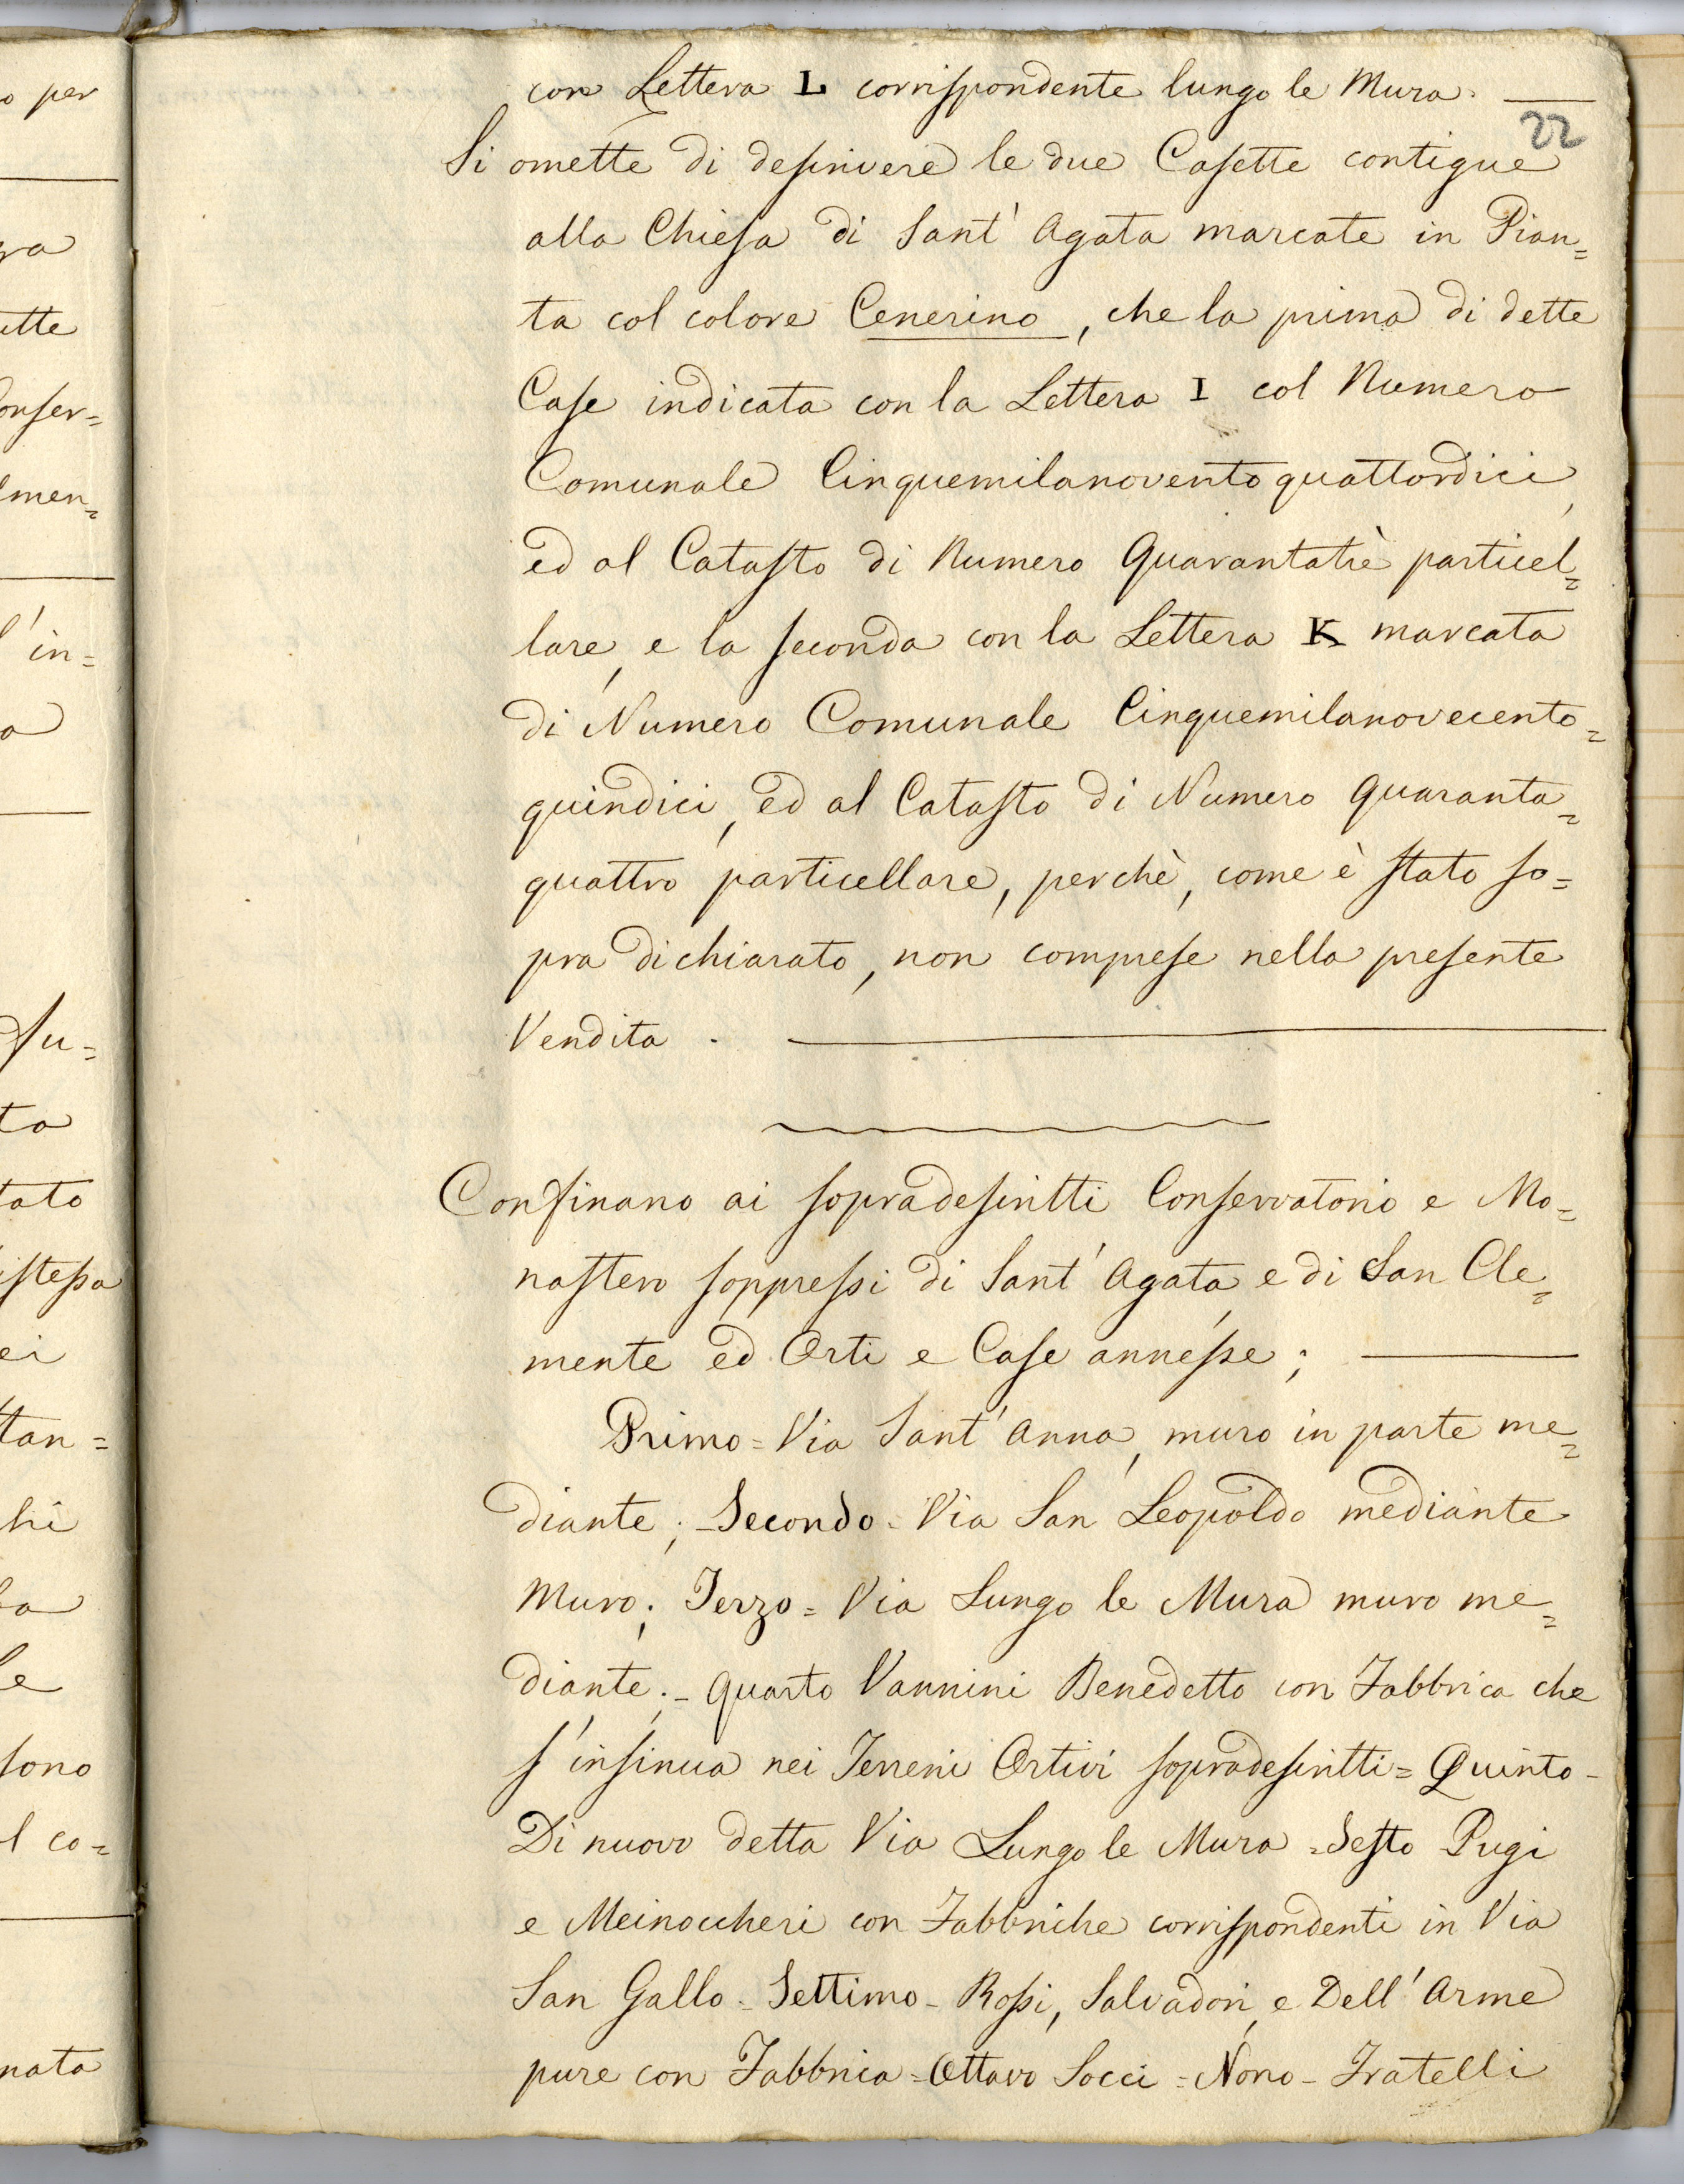 con Lettera L corrispondente lungo le Mura.
22
Si omette di descrivere le due Casette contigue
alla Chiesa di Sant' Agata marcate in Pian=
ta col colore Cenerino, che la prima di dette
Case indicata con la Lettera I col Numero
Comunale Cinquemilanovento quattordici,
ed al Catasto di Numero Quarantatrè particel=
lare, e la seconda con la Lettera K marcata
di Numero Comunale Cinquemilanovecento=
quindici, ed al Catasto di Numero Quaranta=
quattro particellare, perchè, come è stato so=
pra dichiarato, non comprese nella presente
Vendita.
Confinano ai sopradescritti Conservatorio e Mo=
nastero soppressi di Sant' Agata e di San Cle=
mente ed Orti e Case annesse;
Primo = Via Sant' Anna, muro in parte me=
diante; - Secondo = Via San Leopoldo mediante
Muro; Terzo = Via Lungo le Mura muro me=
diante; - Quarto Vannini Benedetto con Fabbrica che
s'insinua nei Terreni Ortivi sopradescritti = Quinto -
Di nuovo detta Via Lungo le Mura = Sesto Pugi
e Meinoccheri con Fabbriche corrispondenti in Via
San Gallo = Settimo - Rossi, Salvadori, e Dell' Arme
pure con Fabbrica = Ottavo Socci = Nono - Fratelli
o per
ra
ette
onser=
lmen=
l'in=
a
su=
to
tato
istessa
ei
tan=
hi
la
le
sono
l co=
nata